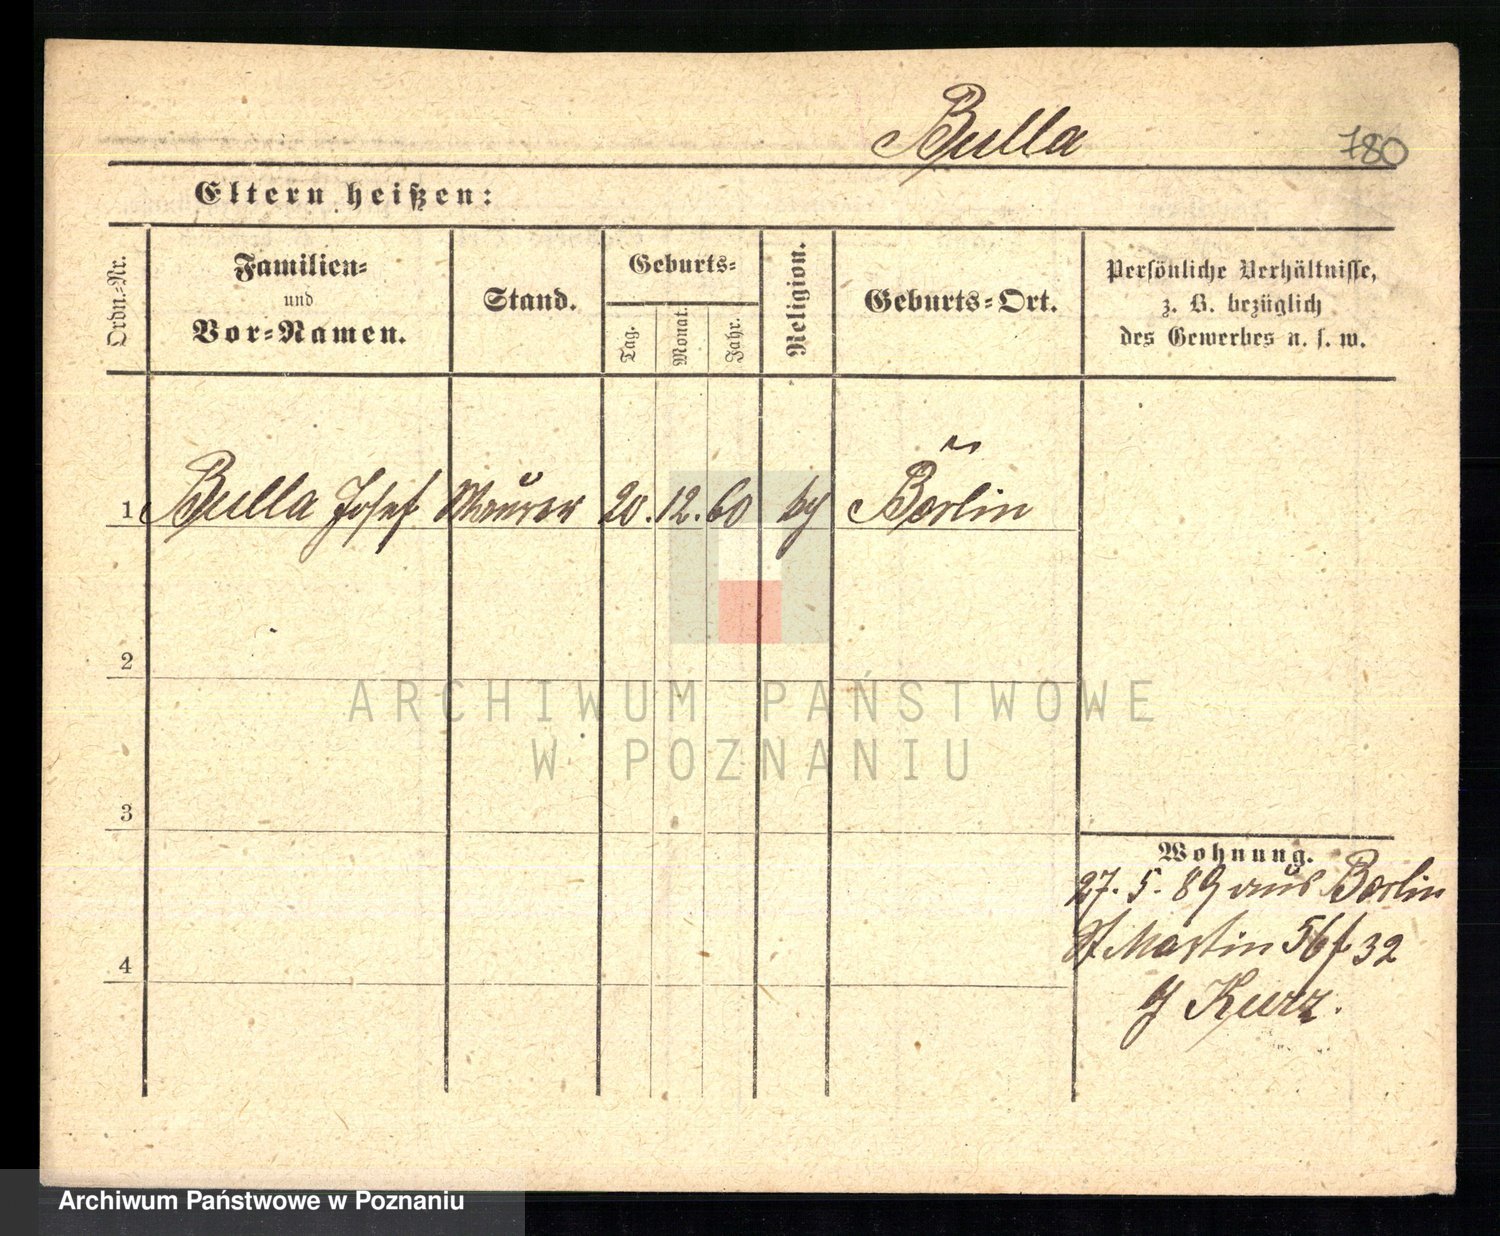 Bulla
780
Eltern heißen:
Ordn.-Nr.
Familien-
und
Vor-Namen.
Stand.
Geburts-
Tag.
Monat.
Jahr.
Religion.
Geburts-Ort.
Persönliche Verhältnisse,
z. B. bezüglich
des Gewerbes u. s. w.
1 Bulla Josef Maurer 20. 12. 60 Berlin
2
3
4
Wohnung.
27. 5. 89 aus Berlin
St Martin 56 32
Kurz.
ARCHIWUM PAŃSTWOWE
W POZNANIU
Archiwum Państwowe w Poznaniu